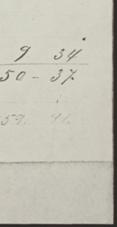 9 34
50-37
59. 91.